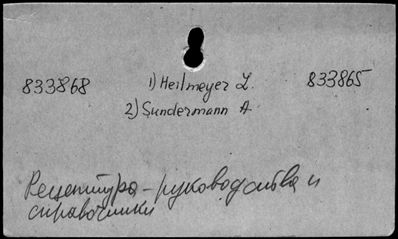 833868 1) Heilmeyer L. 833865
2) Sundermann A
Рецептура - руководства и
справочники